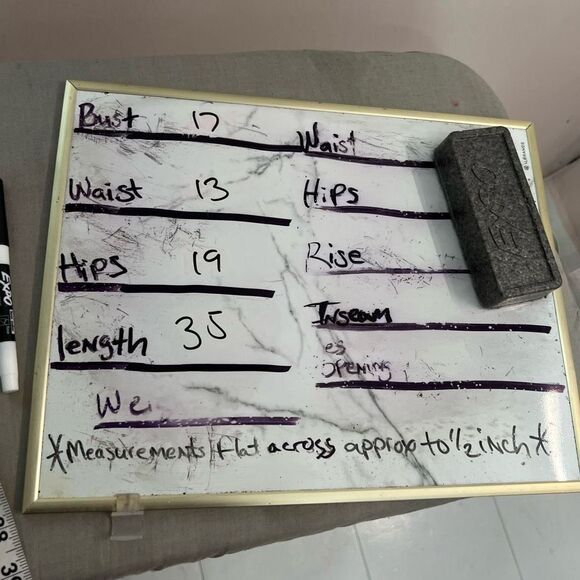 Bust 17
Waist 13
Hips 19
length 35
We
Waist
Hips
Rise
Inseam
es
opening
*Measurements flat across approx to 1/2 inch*
EXPO
EXPO